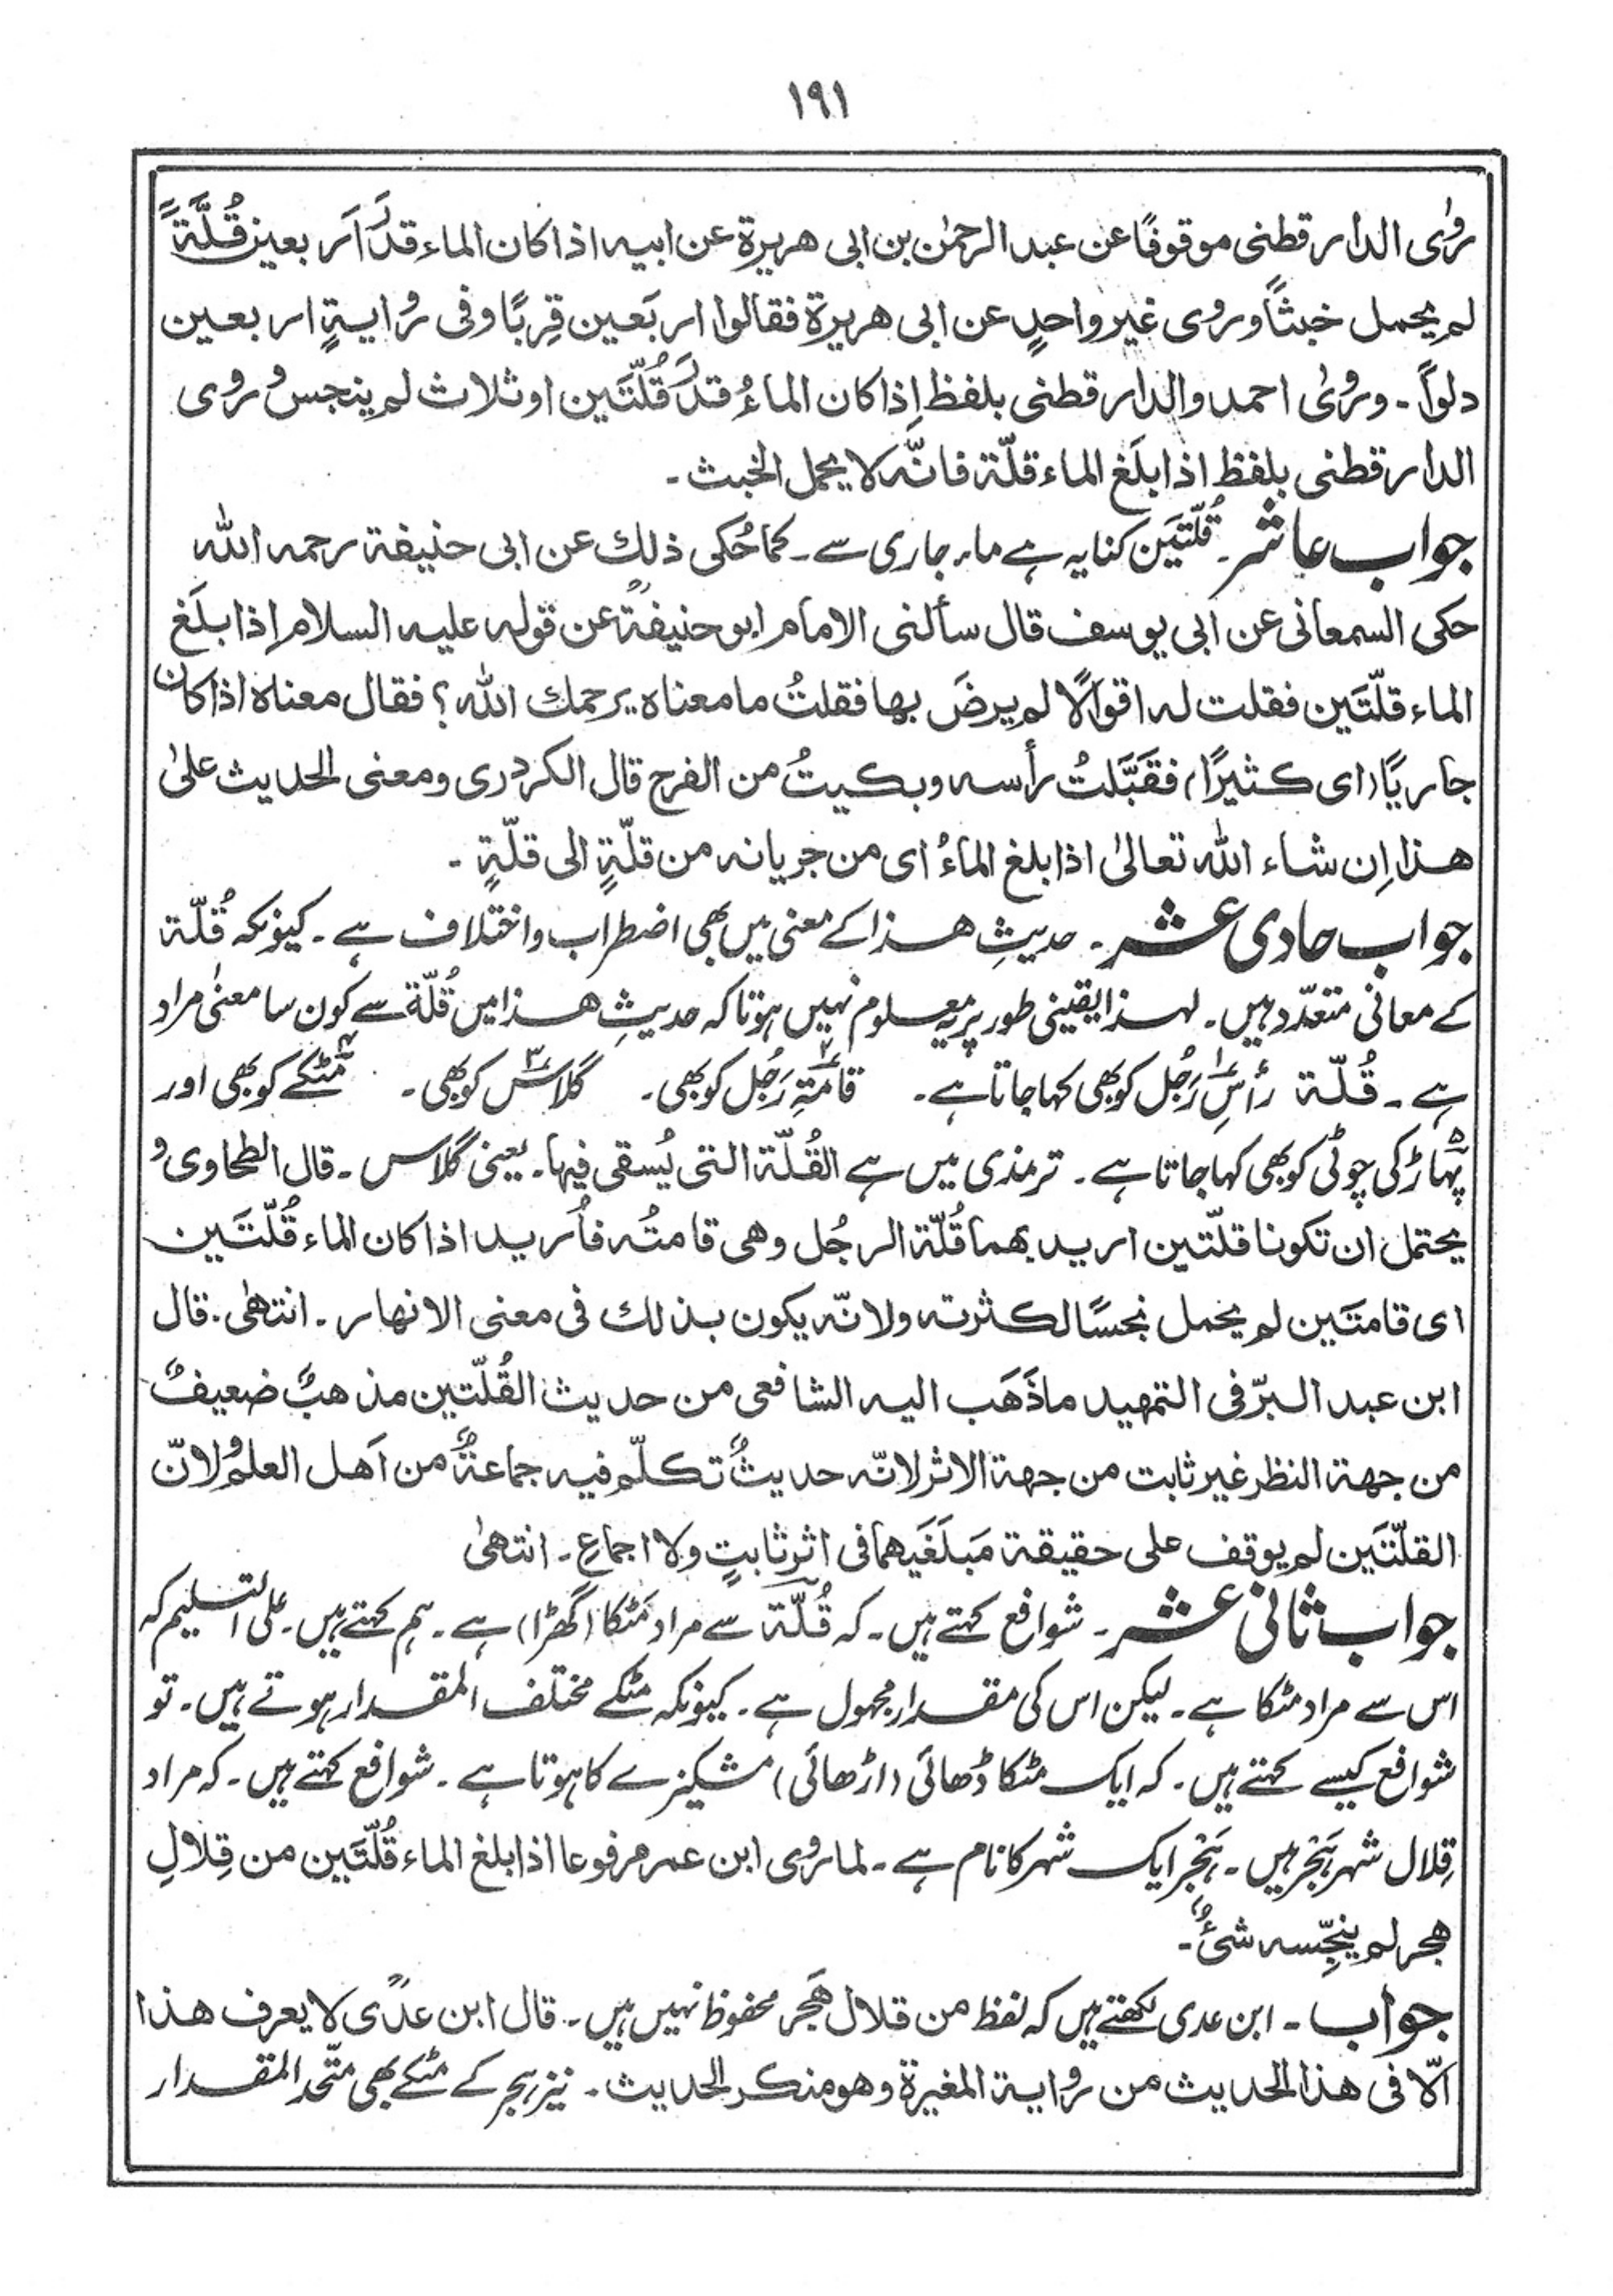 ۱۹۱
روٰی الدارقطنی موقوفًا عن عبد الرحمٰن بن ابی ھریرۃ عن ابیہ اذا کان الماء قدَرَ اَربعین قُلَّۃً
لم یحمل خبثًا و روی غیر واحدٍ عن ابی ھریرۃ فقالوا اربَعین قِربًا و فی رِوایۃٍ اربعین
دلواً ۔ وروٰی احمد والدارقطنی بلفظ اِذا کان الماءُ قدَرَ قُلّتَین او ثلاث لم ینجس و روی
الدارقطنی بلفظ اذا بلَغ الماء قلّۃ فانّہ لا یحمل الخبث ۔
جواب عاشر ۔ قُلّتَین کنایہ ہے ماء جاری سے ۔ کما حُکی ذلك عن ابی حنیفۃ رحمہ اللہ
حکی السمعانی عن ابی یوسف قال سألنی الامام ابو حنیفۃؒ عن قولہ علیہ السلام اِذا بلَغ
الماء قلّتَین فقلت لہ اقوالًا لم یرضَ بھا فقلتُ ما معناہ یرحمك اللہ ؟ فقال معناہ اذا کان
جاریًا (ای کثیرًا) فقَبَّلتُ رأسہ وبکیتُ من الفرح قال الکردری ومعنی الحدیث علیٰ
ھذا اِن شاء اللہ تعالیٰ اذا بلغ الماءُ ای من جریانہ من قلّۃٍ الی قلّۃٍ ۔
جواب حادی عشر ۔ حدیثِ ھذا کے معنی میں بھی اضطراب و اختلاف ہے ۔ کیونکہ قُلّۃ
کے معانی متعدّد ہیں ۔ لہذا یقینی طور پر یہ معلوم نہیں ہوتا کہ حدیثِ ھذا میں قُلّۃ سے کون سا معنیٰ مراد
ہے ۔ قُلّۃ رأسِ۱ رَجُل کو بھی کہا جاتا ہے ۔ قامَۃِ۲ رَجُل کو بھی ۔ گلاس۳ کو بھی ۔ مَٹکے۴ کو بھی اور
پہاڑ۵ کی چوٹی کو بھی کہا جاتا ہے ۔ ترمذی میں ہے القُلّۃ التی یُسقی فیھا ۔ یعنی گلاس ۔ قال الطحاوی و
یحتمل ان تکونا قلّتین ارید بھما قُلّۃ الرجُل وھی قامتُہ فأُرید اذا کان الماء قُلّتَین
ای قامتَین لم یحمل نجسًا لکثرتہ ولانّہ یکون بذلك فی معنی الانھار ۔ انتھٰی ۔ قال
ابن عبد البرّ فی التمھید ما ذَھَب الیہ الشافعی من حدیث القُلّتین مذھبٌ ضعیفٌ
من جھۃ النظر غیر ثابت من جھۃ الاثر لانّہ حدیثٌ تکلّم فیہ جماعۃٌ من اَھل العلم و لانّ
القلّتَین لم یوقف علی حقیقۃ مَبلَغَیھما فی اثرٍ ثابتٍ ولا اجماعٍ ۔ انتھیٰ
جواب ثانی عشر ۔ شوافع کہتے ہیں ۔ کہ قُلّۃ سے مراد مَٹکا (گھڑا) ہے ۔ ہم کہتے ہیں ۔ علی التسلیم کہ
اس سے مراد مٹکا ہے ۔ لیکن اس کی مقدار مجہول ہے ۔ کیونکہ مٹکے مختلف المقدار ہوتے ہیں ۔ تو
شوافع کیسے کہتے ہیں ۔ کہ ایک مٹکا ڈھائی (اڑھائی) مشکیزے کا ہوتا ہے ۔ شوافع کہتے ہیں ۔ کہ مراد
قِلال شہر ہَجَر ہیں ۔ ہَجَر ایک شہر کا نام ہے ۔ لما روی ابن عمر مرفوعا اذا بلغ الماء قُلّتَین من قِلالِ
ھجر لم ینجِّسہ شئٌ ۔
جواب ۔ ابن عدی لکھتے ہیں کہ لفظ من قلال ھَجَر محفوظ نہیں ہیں ۔ قال ابن عدیؒ لا یعرف ھذا
اِلّا فی ھذا الحدیث من رِوایۃ المغیرۃ وھو منکر الحدیث ۔ نیز ہجر کے مٹکے بھی متّحد المقدار